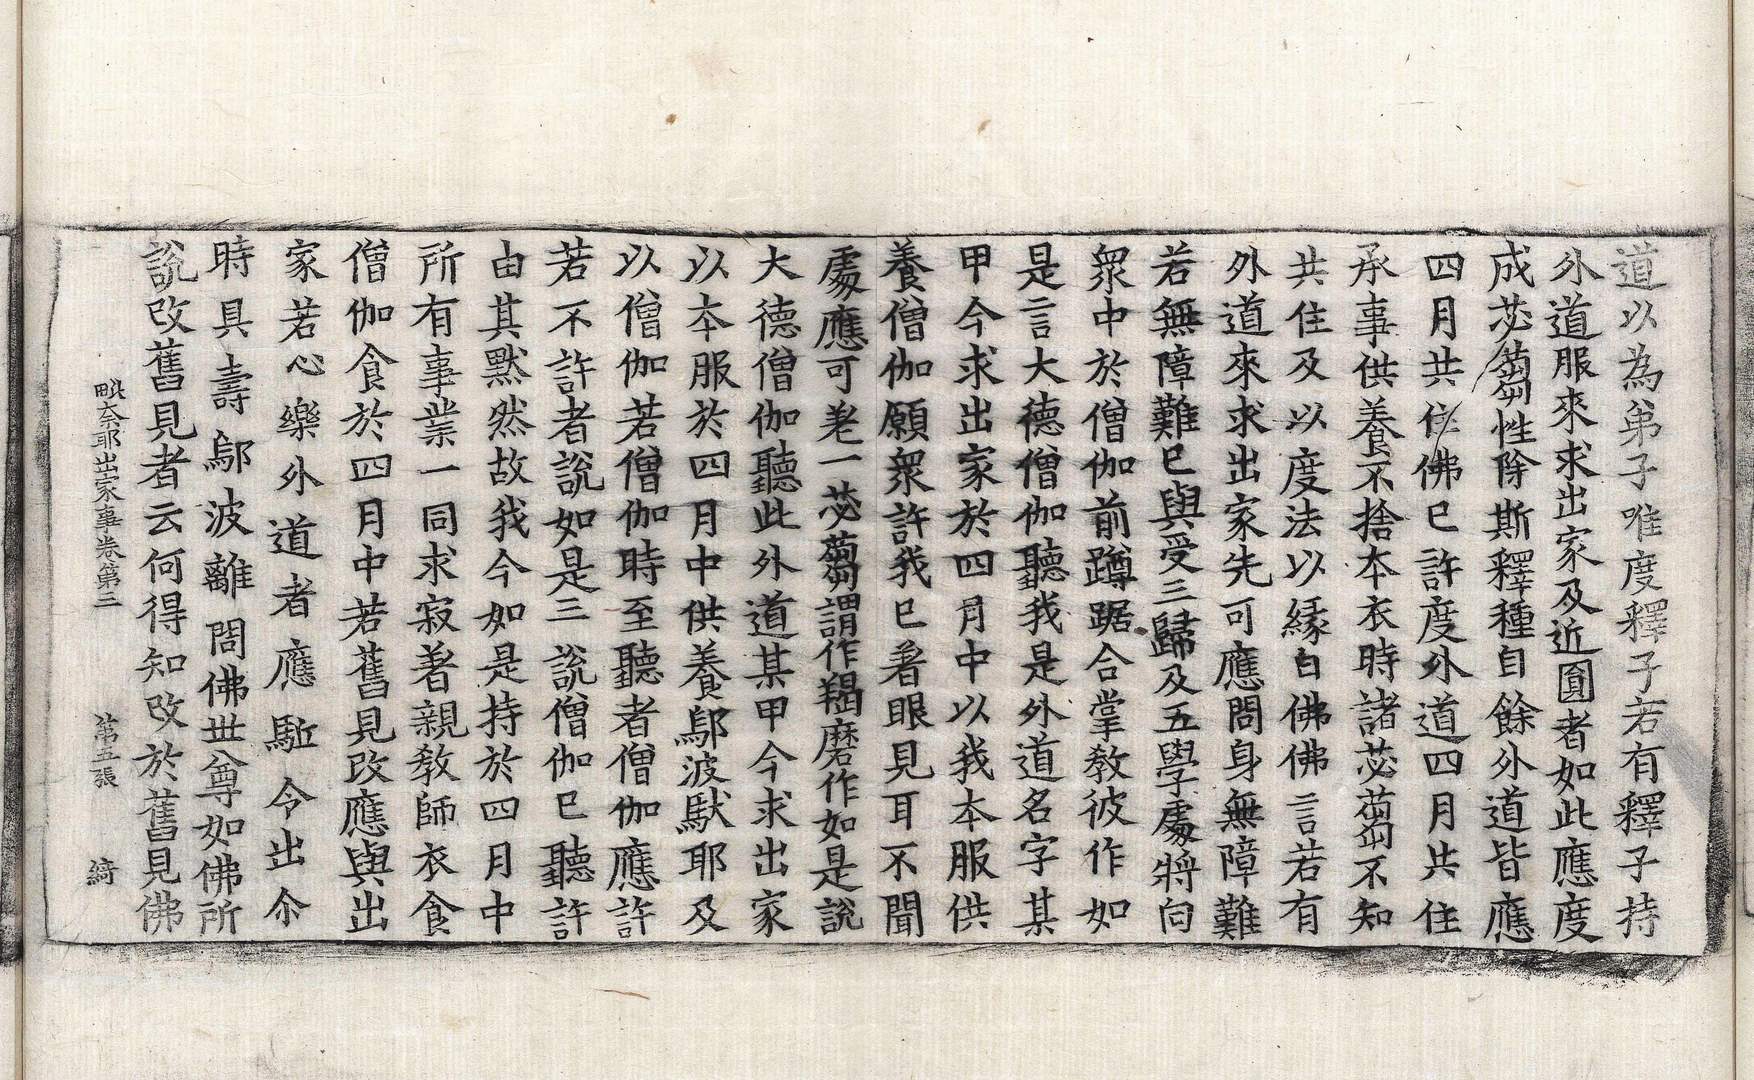 道以為弟子唯度釋子若有釋子持
外道服來求出家及近圓者如此應度
成苾蒭性除斯釋種自餘外道皆應
四月共住佛已許度外道四月共住
承事供養不捨本衣時諸苾蒭不知
共住及以度法以緣白佛佛言若有
外道來求出家先可應問身無障難
若無障難已與受三歸及五學處將向
衆中於僧伽前蹲踞合掌教彼作如
是言大德僧伽聽我是外道名字某
甲今求出家於四月中以我本服供
養僧伽願衆許我已著眼見耳不聞
處應可差一苾蒭謂作羯磨作如是說
大德僧伽聽此外道某甲今求出家
以本服於四月中供養鄔波馱耶及
以僧伽若僧伽時至聽者僧伽應許
若不許者說如是三說僧伽已聽許
由其默然故我今如是持於四月中
所有事業一同求寂著親教師衣食
僧伽食於四月中若舊見改應與出
家若心樂外道者應駈令出尒
時具壽鄔波離問佛世尊如佛所
說改舊見者云何得知改於舊見佛
毗奈耶出家事卷第三 第五張 綺